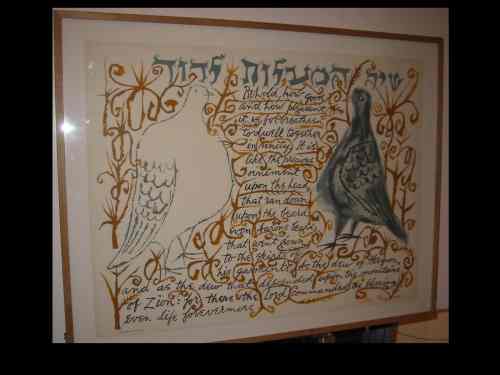 שיר המעלות לדוד
Behold, how good
and how pleasant
it is for brethren
to dwell together
in unity. It is
like the precious
ointment
upon the head
that ran down
upon the beard
even Aarons beard
that went down
to the skirts of
his garments As the dew of Hermon
and as the dew that descended upon the mountains
of Zion: for there the Lord commanded the blessing
Even life forevermore